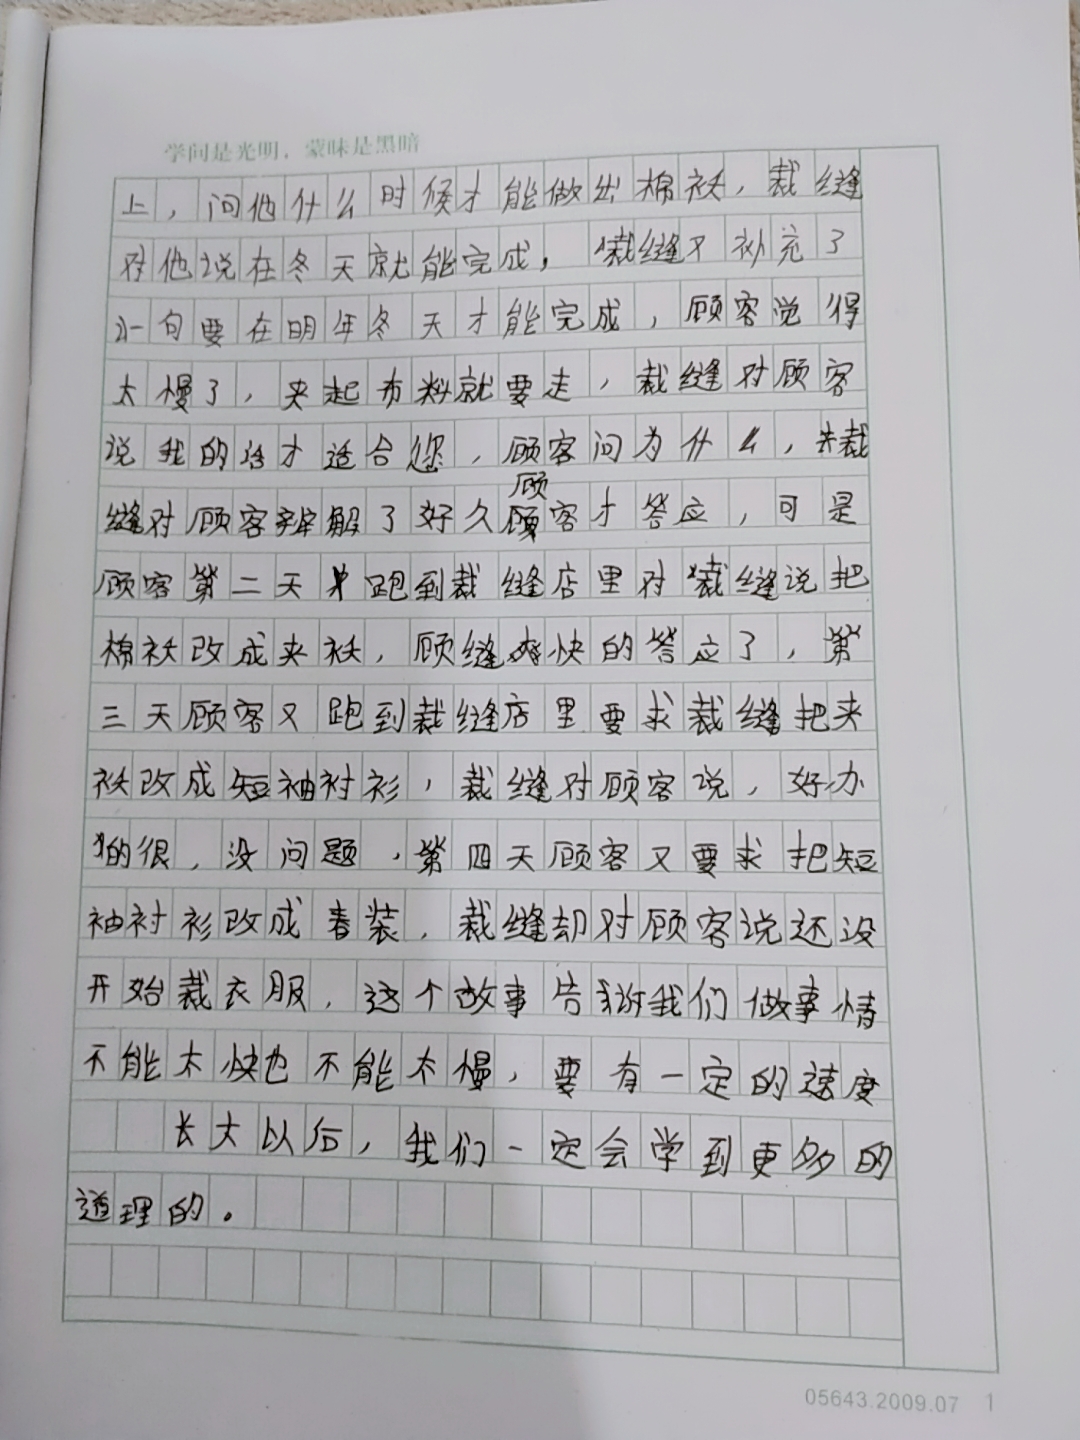 学问是光明，蒙昧是黑暗
上，问他什么时候才能做出棉袄，裁缝
对他说在冬天就能完成，裁缝又补充了
一句要在明年冬天才能完成，顾客觉得
太慢了，夹起布料就要走，裁缝对顾客
说我的活才适合您，顾客问为什么，裁
缝对顾客辨解了好久顾客才答应，可是
顾客第二天跑到裁缝店里对裁缝说把
棉袄改成夹袄，顾缝爽快的答应了，第
三天顾客又跑到裁缝店里要求裁缝把夹
袄改成短袖衬衫，裁缝对顾客说，好办
的很，没问题，第四天顾客又要求把短
袖衬衫改成春装，裁缝却对顾客说还没
开始裁衣服，这个故事告诉我们做事情
不能太快也不能太慢，要有一定的速度
长大以后，我们一定会学到更多的
道理的。
05643.2009.07 1